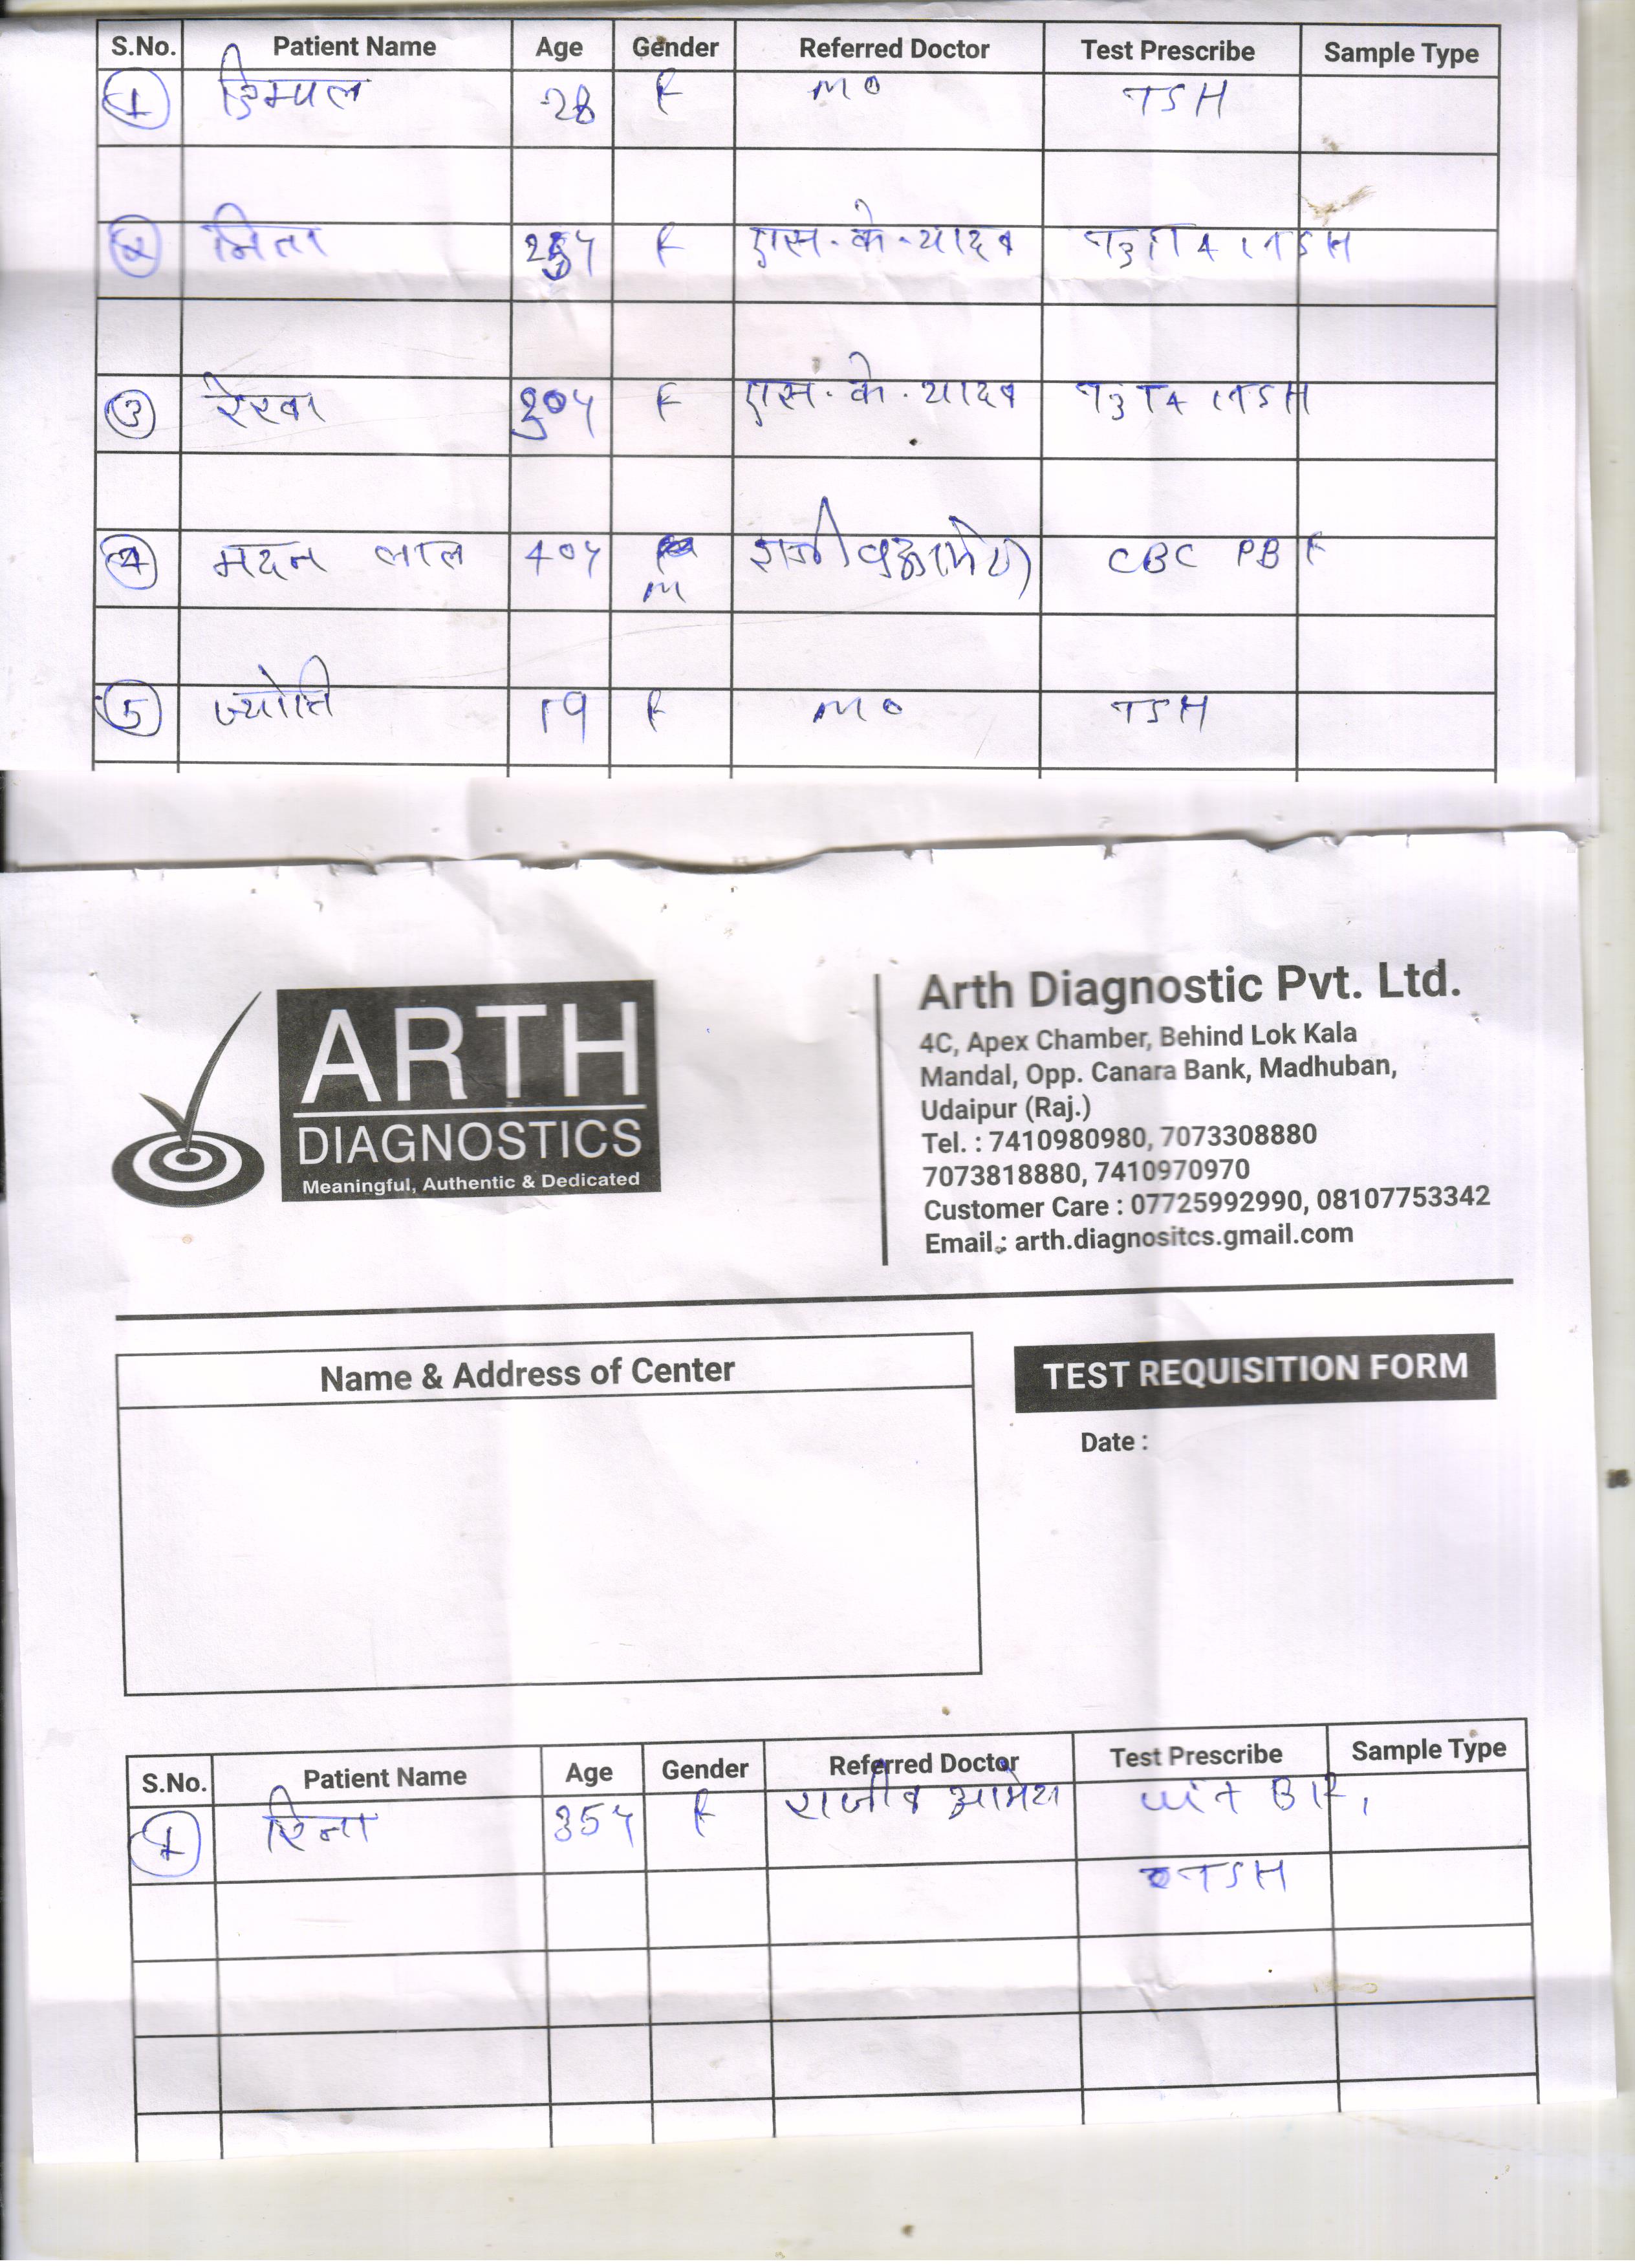 S.No. Patient Name Age Gender Referred Doctor Test Prescribe Sample Type
1 डिम्पल 28 F MO TSH
2 मिता F एस.के.यादव T3 T4 TSH
3 रेखा 30y F एस.के.यादव T3 T4 TSH
4 मदन लाल 40y M CBC PBF
5 ज्योति 19 F MO TSH
ARTH
DIAGNOSTICS
Meaningful, Authentic & Dedicated
Arth Diagnostic Pvt. Ltd.
4C, Apex Chamber, Behind Lok Kala
Mandal, Opp. Canara Bank, Madhuban,
Udaipur (Raj.)
Tel. : 7410980980, 7073308880
7073818880, 7410970970
Customer Care : 07725992990, 08107753342
Email : arth.diagnositcs.gmail.com
Name & Address of Center
TEST REQUISITION FORM
Date :
S.No. Patient Name Age Gender Referred Doctor Test Prescribe Sample Type
1 रिना 35y F राजीव आमेटा
TSH